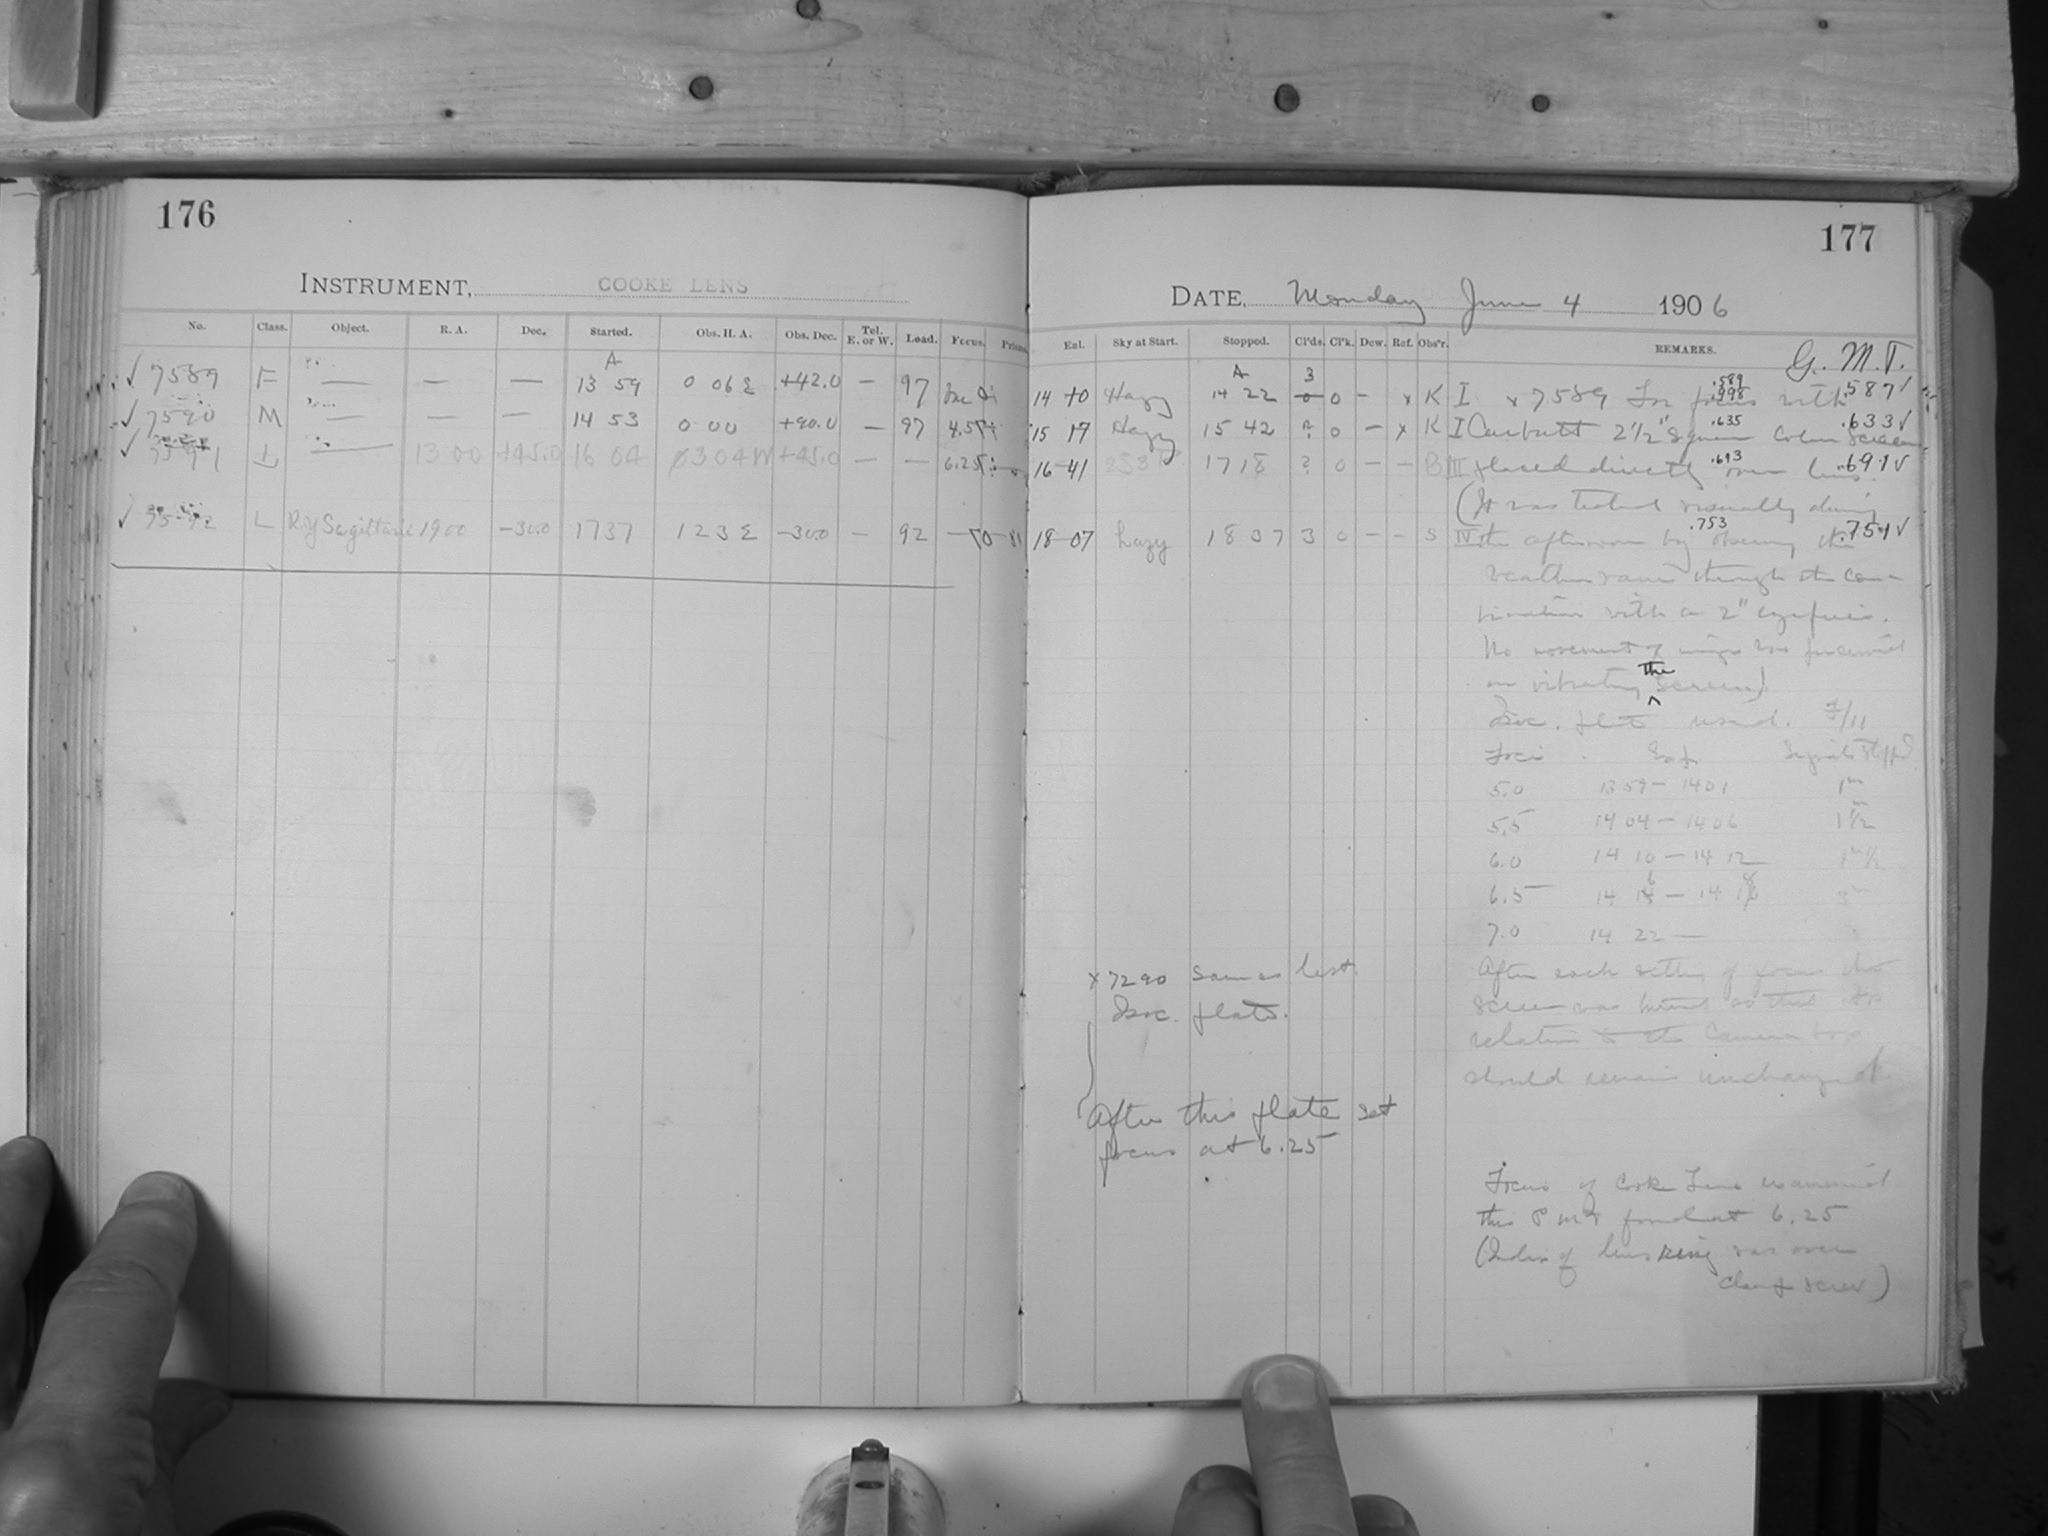 176
INSTRUMENT, COOKE LENS
No. Class. Object. R. A. Dec. Started. Obs. H. A. Obs. Dec. Tel. E. or W. Load. Focus.
A
✓ 7589 F — — — 13 59 0 06 E +42.0 — 97
✓ 7590 M — — — 14 53 0 00 +90.0 — 97
✓ 7591 L — 13 00 +45.0 16 04 0304W +45.0 — — 6.25
✓ L RY Sagittarii 1900 -30.0 1737 1 23 E -30.0 — 92
177
DATE, Monday June 4 1906
Exl. Sky at Start. Stopped. Cl'ds. Cl'k. Dew. Ref. Obs'r. REMARKS.
G. M. T.
A 3 .589
14 Hazy 14 22 0 0 - x K I x 7589 For focus with .587✓
.635
15 17 Hazy 15 42 ? 0 - x K I Carbutt 2½" square Color screen .633✓
.693
16-41 1718 ? 0 - - B III placed directly over lens. .691✓
(It was tested visually during
.753
18-07 hazy 18 07 3 0 - - S IV the afternoon by observing the .751✓
weather vane through the com-
bination with a 2" eyepiece.
No movement of image was perceived
the
on vibrating ^ screen)
Isoc. plate used. F/11
Foci Exp
5.0 13 59 - 14 01 1m
5.5 14 04 - 14 06 1½m
6.0 14 10 - 14 12 1m½
6.5 14 16 - 14 18
7.0 14 22 —
After each setting of focus the
screen was turned so that its
relation to the Camera
should remain unchanged
x 7290 same as last
Isoc. plate.
After this plate set
focus at 6.25
Focus of Cooke Lens examined
this P M & found at 6.25
(Index of lens ring was over
clamp screw)